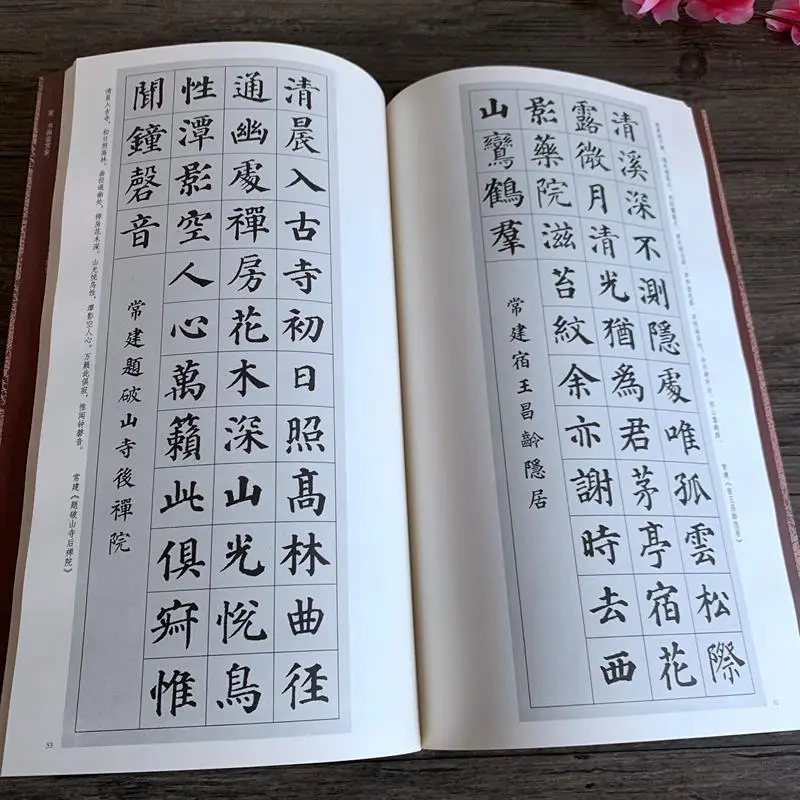 清溪深不測隱處唯孤雲松際
露微月清光猶為君茅亭宿花
影藥院滋苔紋余亦謝時去西
山鸞鶴羣
常建宿王昌齡隱居
清晨入古寺初日照髙林曲徑
通幽處禪房花木深山光悅鳥
性潭影空人心萬籟此俱寂惟
聞鐘磬音
常建題破山寺後禪院
清晨入古寺，初日照高林。曲径通幽处，禅房花木深。山光悦鸟性，潭影空人心。万籁此俱寂，惟闻钟磬音。
常建《题破山寺后禅院》
53